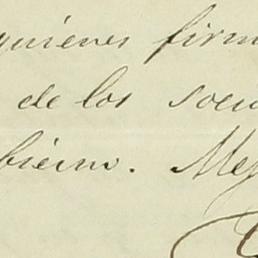 quienes firm
de los soci
bierno. Me